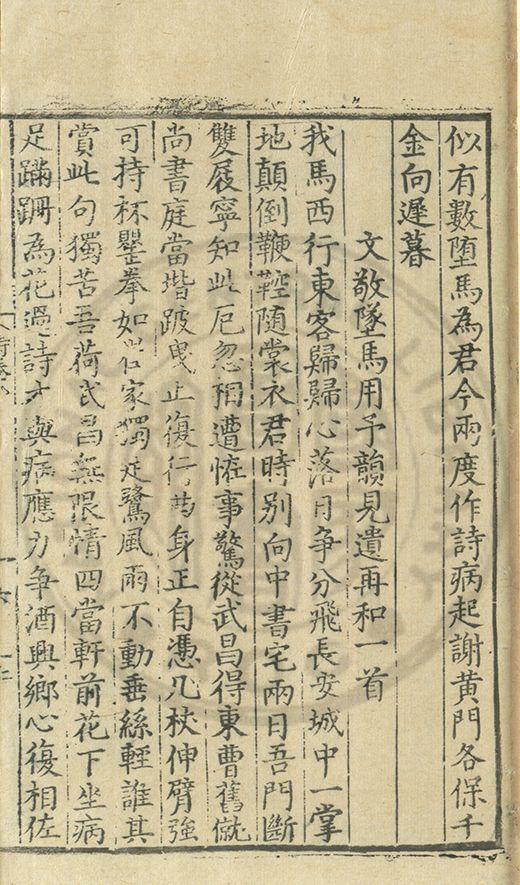 似有數墮馬為君今兩度作詩病起謝黃門各保千
金向遲暮
文敬墜馬用予韻見遺再和一首
我馬西行東客歸歸心落日爭分飛長安城中一掌
地顛倒鞭鞚隨裳衣君時別向中書宅兩日吾門斷
雙屐寧知此厄忽相遭怪事驚從武昌得東曹舊僦
尚書庭當堦跛曳止復行兩身正自憑几杖伸臂強
可持杯罌拳如此家獨足鷺風雨不動垂絲輕誰其
賞此句獨苦吾荷武昌無限情四當軒前花下坐病
足蹣跚為花過詩才與病應力爭酒興鄉心復相佐